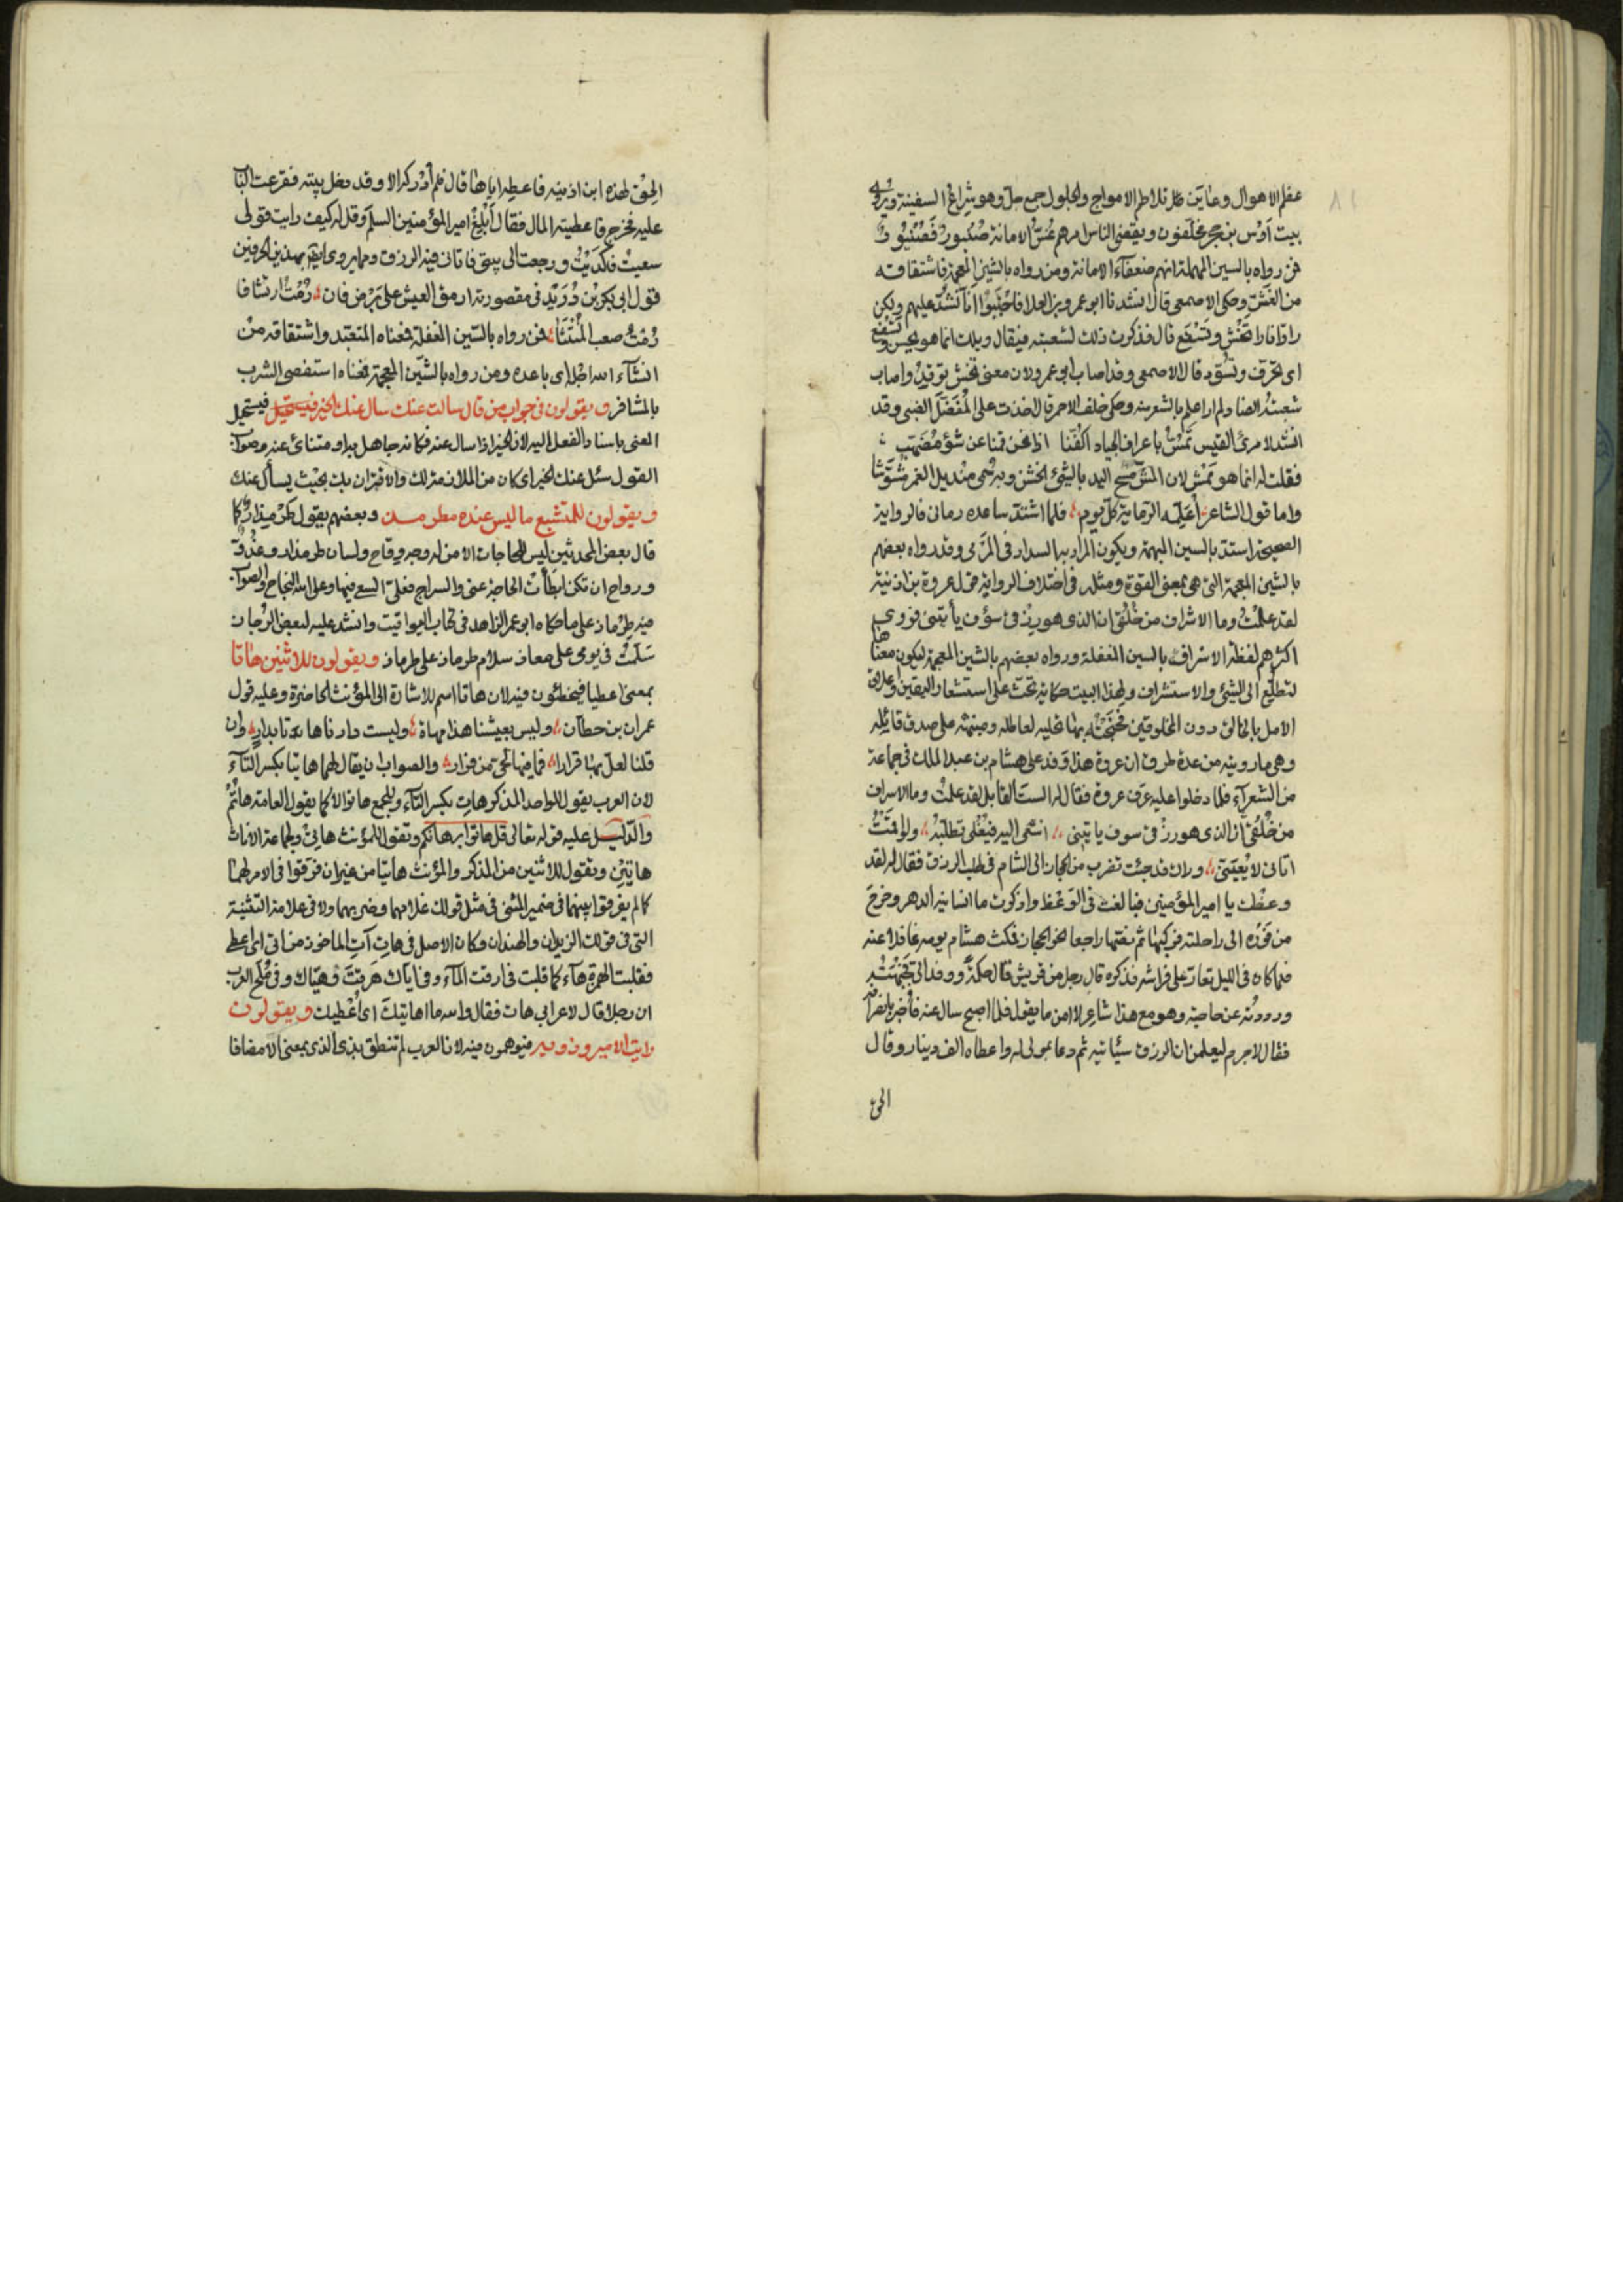 عظم الاهوال وعاين تلاطم الامواج والجلول جمع جل وهو شراع السفينة ويروى
بيت اوس بن حجر مخلفون ويقضى الناس امرهم غس الامانة صنبور فصنبور
فمن رواه بالسين المهملة انهم ضعفاء الامانة ومن رواه بالشين المعجمة فاشتقاقه
من الغش وحكى الاصمعى قال انشدنا ابو عمرو بن العلا فاجنبوا انا نشد عليهم ولكن
راوا نارا تحش وتسفع قال فذكرت ذلك لشعبة فقال ويلك انما هو تحس وتسفع
اى تحرق وتسود قال الاصمعى وقد اصاب ابو عمرو لان معنى تحش توقد واصاب
شعبة ايضا ولم ار اعلم بالشعر منه وحكى خلف الاحمر قال اخذت على المفضل الضبى وقد
انشد لامرئ القيس تمس باعراف الجياد اكفنا اذا نحن قمنا عن شوء مضهب
فقلت له انما هو نمش لان المش مسح اليد بالشئ الخشن وبه سمى منديل الغمر مشوشا
واما قول الشاعر اعلمه الرماية كل يوم فلما اشتد ساعده رمانى فالرواية
الصحيحة استد بالسين المبهمة ويكون المراد به السداد فى الرمى وقد رواه بعضهم
بالشين المعجمة التى هى بمعنى القوة ومثله فى اختلاف الرواية قول عروة بن اذينة
لقد علمت وما الاشراف من خلقى ان الذى هو رزقى سوف يأتينى فروى
اكثرهم لفظة الاسراف بالسين المغفلة ورواه بعضهم بالشين المعجمة ليكون معناها
لتطلع الى الشئ والاستشراف ولهذا البيت حكاية تحث على استشعار اليقين واعلاق
الامل بالخالق دون المخلوقين
وهى ما رويته من عدة طرق ان عروة هذا وفد على هشام بن عبد الملك فى جماعة
من الشعراء فلما دخلوا عليه عرف عروة فقال له الست القايل لقد علمت وما الاسراف
من خلقى ان الذى هو رزقى سوف ياتينى اسعى اليه فيعنى تطلبه ولو قعدت
اتانى لا يعنينى ولان قد جئت تضرب من الحجاز الى الشام فى طلب الرزق فقال له لقد
وعظت يا امير المؤمنين فبالغت فى الوعظ واذكرت ما انسانيه الدهر وخرج
من فوره الى راحلته فركبها ثم نصها راجعا نحو الحجاز فمكث هشام يومه غافلا عنه
فلما كان فى الليل تعار على فراشه فذكره قال رجل من قريش قال حكمة ووفد الى فجبهته
ورددته عن حاجته وهو مع هذا شاعر لا امن ما يقول فلما اصبح سال عنه فاخبر بانصرافه
فقال لا جرم ليعلمن ان الرزق سيأتيه ثم دعا بمولى له واعطاه الف دينار وقال
الحق
الحق لهذه ابن اذينة فاعطه اياها قال فلم ادركه الا وقد دخل بيته فقرعت الباب
عليه فخرج فاعطيته المال فقال ابلغ امير المؤمنين السلم وقل له كيف رايت قولى
سعيت فاكديت ورجعت الى بيتى فاتانى فيه الرزق ومما يروى ايضا بهذين الحرفين
قول ابى بكر بن دريد فى مقصورته ارمق العيش على برض فان رمت ارتشافا
رمت صعب المنتشا فمن رواه بالسين المغفلة فمعناه المتعبد واشتقاقه من
انشآء الله اجله اى باعده ومن رواه بالشين المعجمة فمعناه استفصى الشرب
بالمشافر ويقولون فى جواب من قال سالت عنك سال عنك الخير فيستحيل
المعنى باسناد الفعل اليه لان الخير اذا سال عنه فكانه جاهل به او متناىء عنه وصواب
القول سئل عنك الخير اى كان من الملازمة لك والاقتران بك بحيث يسأل عنك
ويقولون للمتشبع ما ليس عنده مطرمذ وبعضهم يقول طرمذار كما
قال بعض المحدثين ليس للحاجات الا من له وجه وقاح ولسان طرمذار وغدو
ورواح ان تكن ابطأت الحاجة عنى والسراح فعلى السعى فيها وعلى الله النجاح والصواب
فيه طرماذ على ما حكاه ابو عمر الزاهد فى كتاب اليواقيت وانشد عليه لبعض الرجاز
سلمت فى يومى على معاذ سلام طرماذ على طرماذ ويقولون للاثنين هاتا
بمعنى اعطيا فيخطئون فيه لان هاتا اسم للاشارة الى المؤنث الحاضرة وعليه قول
عمران بن حطان وليس بعيشنا هذا مهاة وليست دارنا هاتا بدار وان
قلنا لعل بها قرارا فما فيها لحى من قرار والصواب ان يقال لهما هاتيا بكسر التآء
لان العرب يقول للواحد المذكر هات بكسر التآء وللجمع هاتوا الا كما يقول العامة هاتم
والدليل عليه قوله تعالى قل هاتوا برهانكم وتقول للمؤنث هاتى ولجماعة الاناث
هاتين وتقول للاثنين من المذكر والمؤنث هاتيا من غير ان فرقوا فى الامر لهما
كما لم يفرقوا بينهما فى ضمير المثنى فى مثل قولك غلامهما وضربهما ولا فى علامة التثنية
التى فى قولك الزيدان والهندان وكان الاصل فى هات آت الماخوذ من اتى اى اعطى
فقلبت الهمزة هاء كما قلبت فى ارقت المآء وفى اياك هرقت وهياك وفى ملح العرب
ان رجلا قال لاعرابى هات فقال والله ما اهاتيك اى اعطيك ويقولون
رايت الامير وذويه فيوهمون فيه لان العرب لم تنطق بذى الذى بمعنى الا مضافا